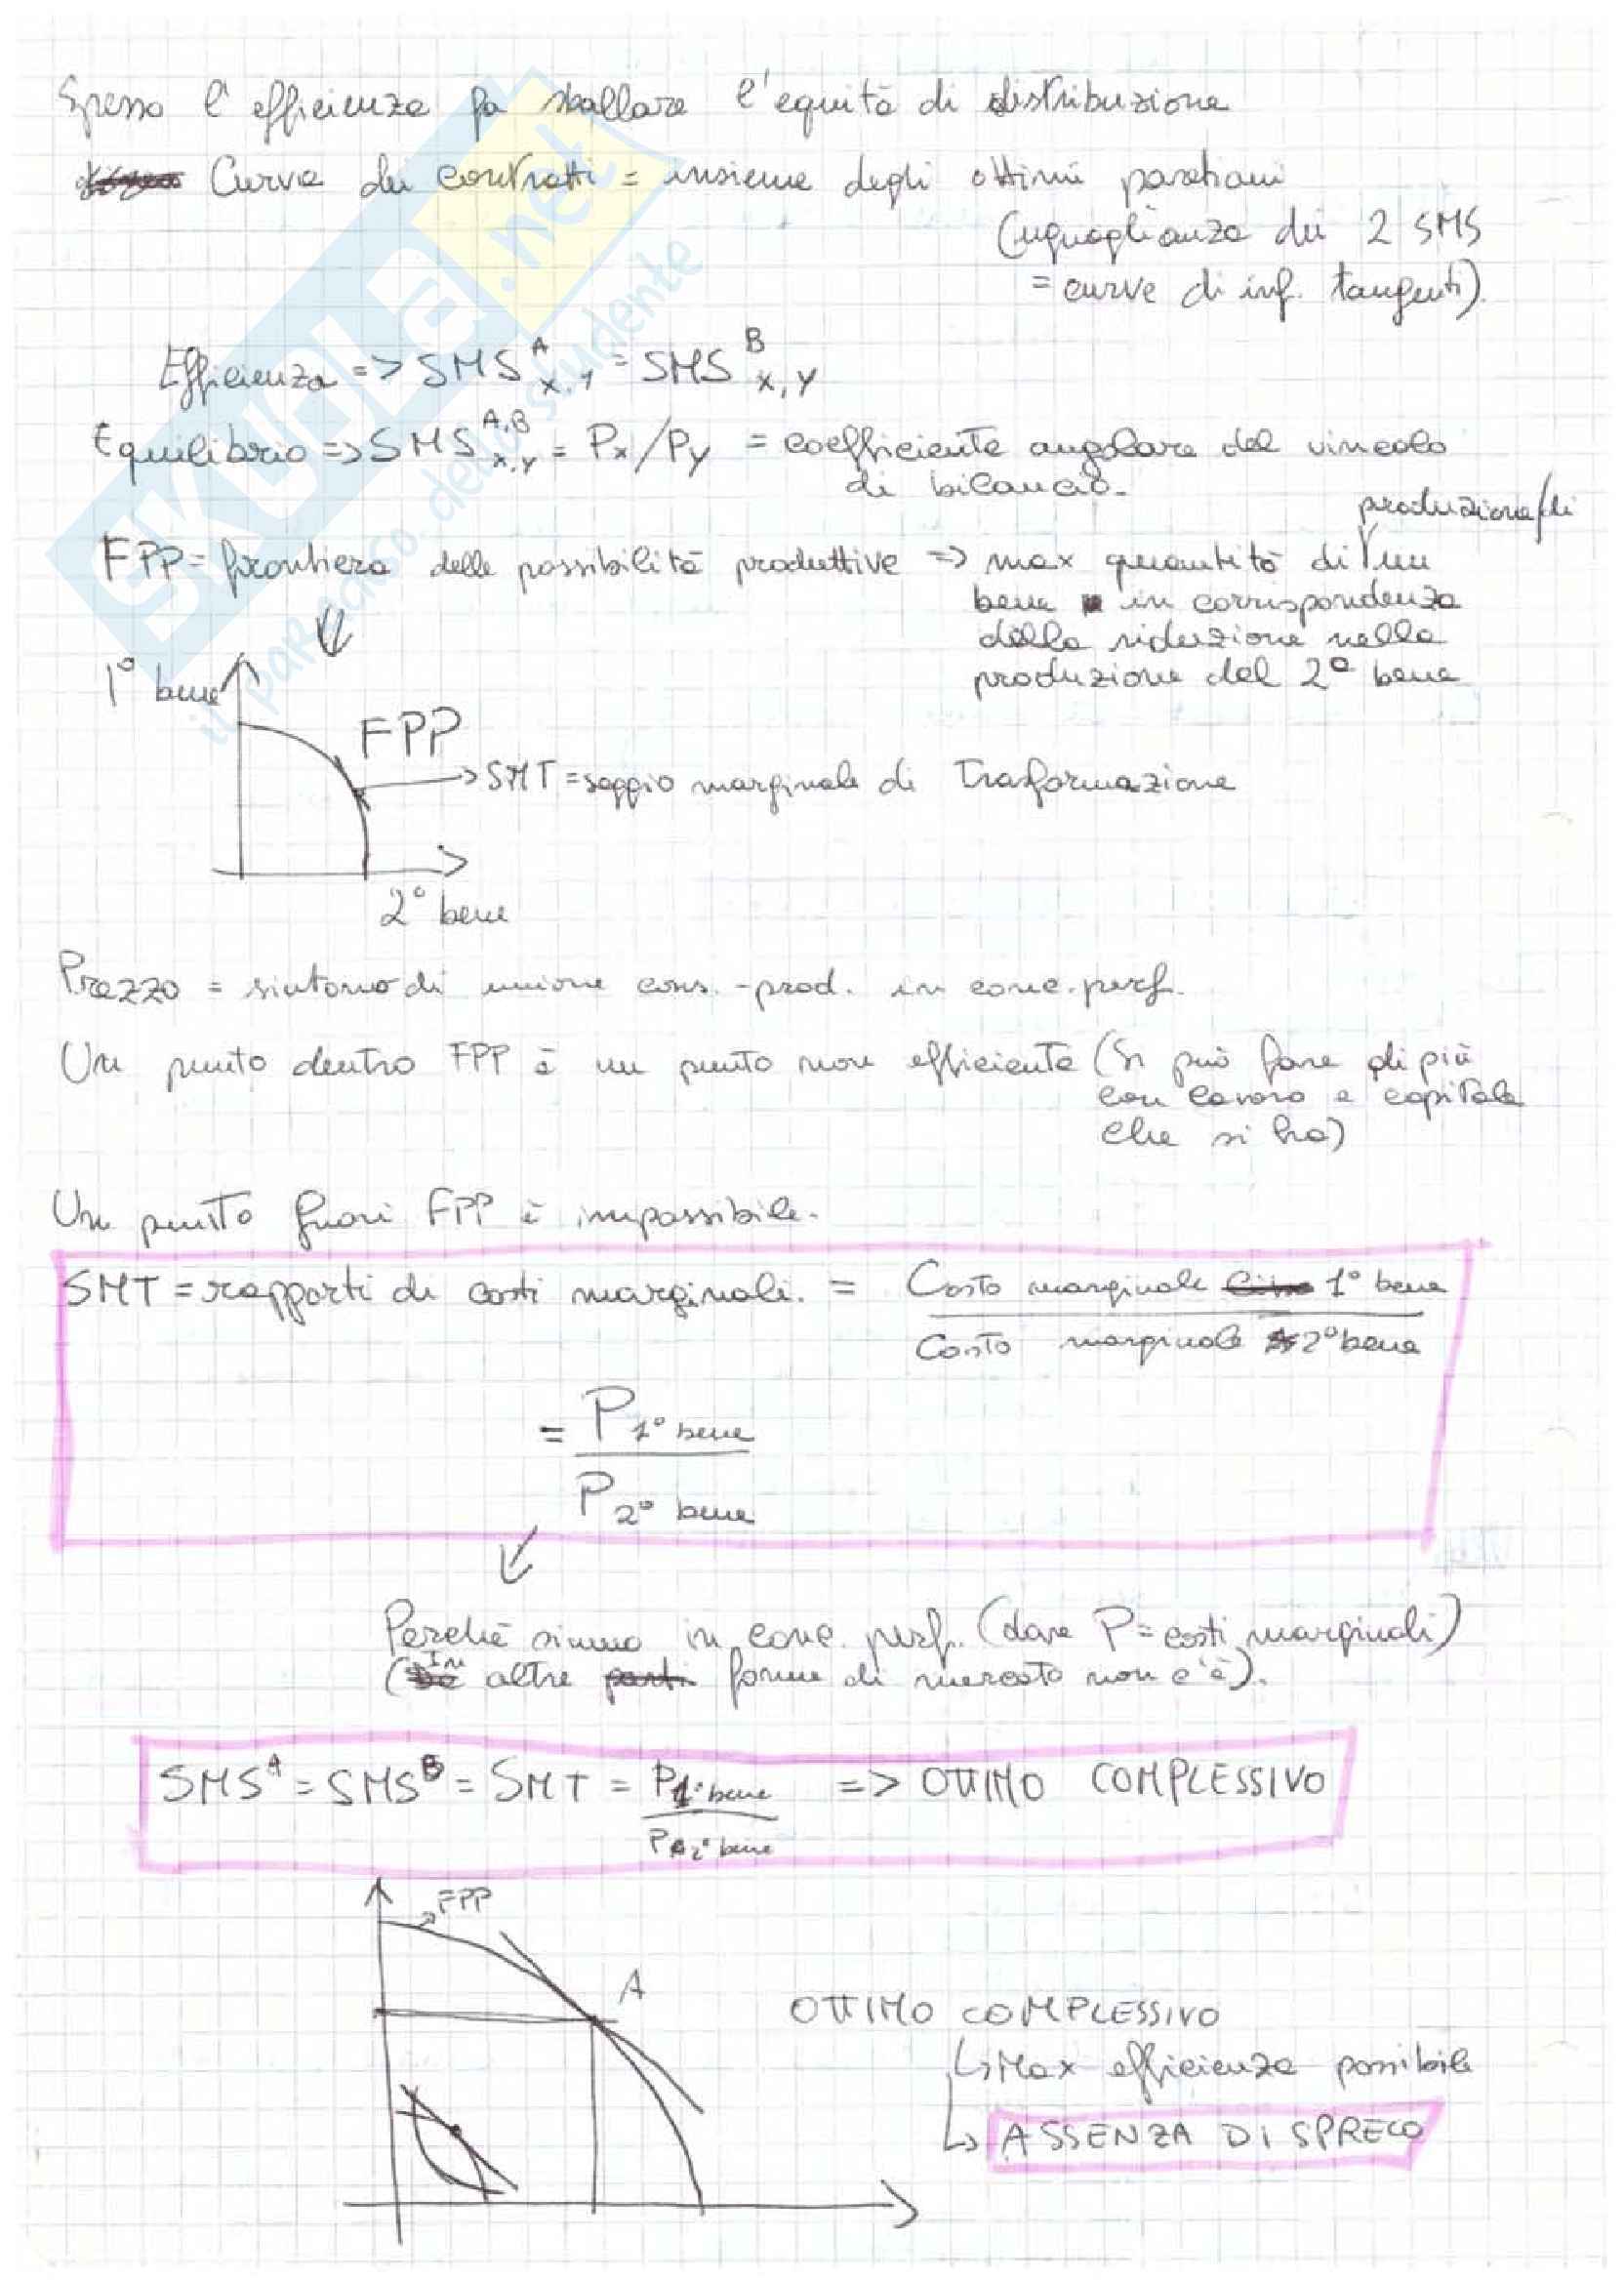 Spesso l'efficienza fa sballare l'equità di distribuzione
Curva dei contratti = insieme degli ottimi paretiani
(uguaglianza dei 2 SMS
= curve di inf. tangenti).
Efficienza => SMS^A x,y = SMS^B x,y
Equilibrio => SMS^A,B x,y = Px/Py = coefficiente angolare del vincolo
di bilancio.
produzione/di
FPP = frontiera delle possibilità produttive => max quantità di un
bene in corrispondenza
della riduzione nella
produzione del 2° bene
1° bene
FPP
SMT = saggio marginale di Trasformazione
2° bene
Prezzo = sintomo di unione cons.-prod. in conc. perf.
Un punto dentro FPP è un punto non efficiente (Si può fare di più
con lavoro e capitale
che si ha)
Un punto fuori FPP è impossibile.
SMT = rapporti di costi marginali. = Costo marginale 1° bene
Costo marginale 2° bene
= P 1° bene
P 2° bene
Perchè siamo in conc. perf. (dove P = costi marginali)
(In altre forme di mercato non c'è).
SMS^A = SMS^B = SMT = P 1° bene => OTTIMO COMPLESSIVO
P 2° bene
FPP
A
OTTIMO COMPLESSIVO
Max efficienza possibile
ASSENZA DI SPRECO
SKUOLA.net
il paradiso dello studente